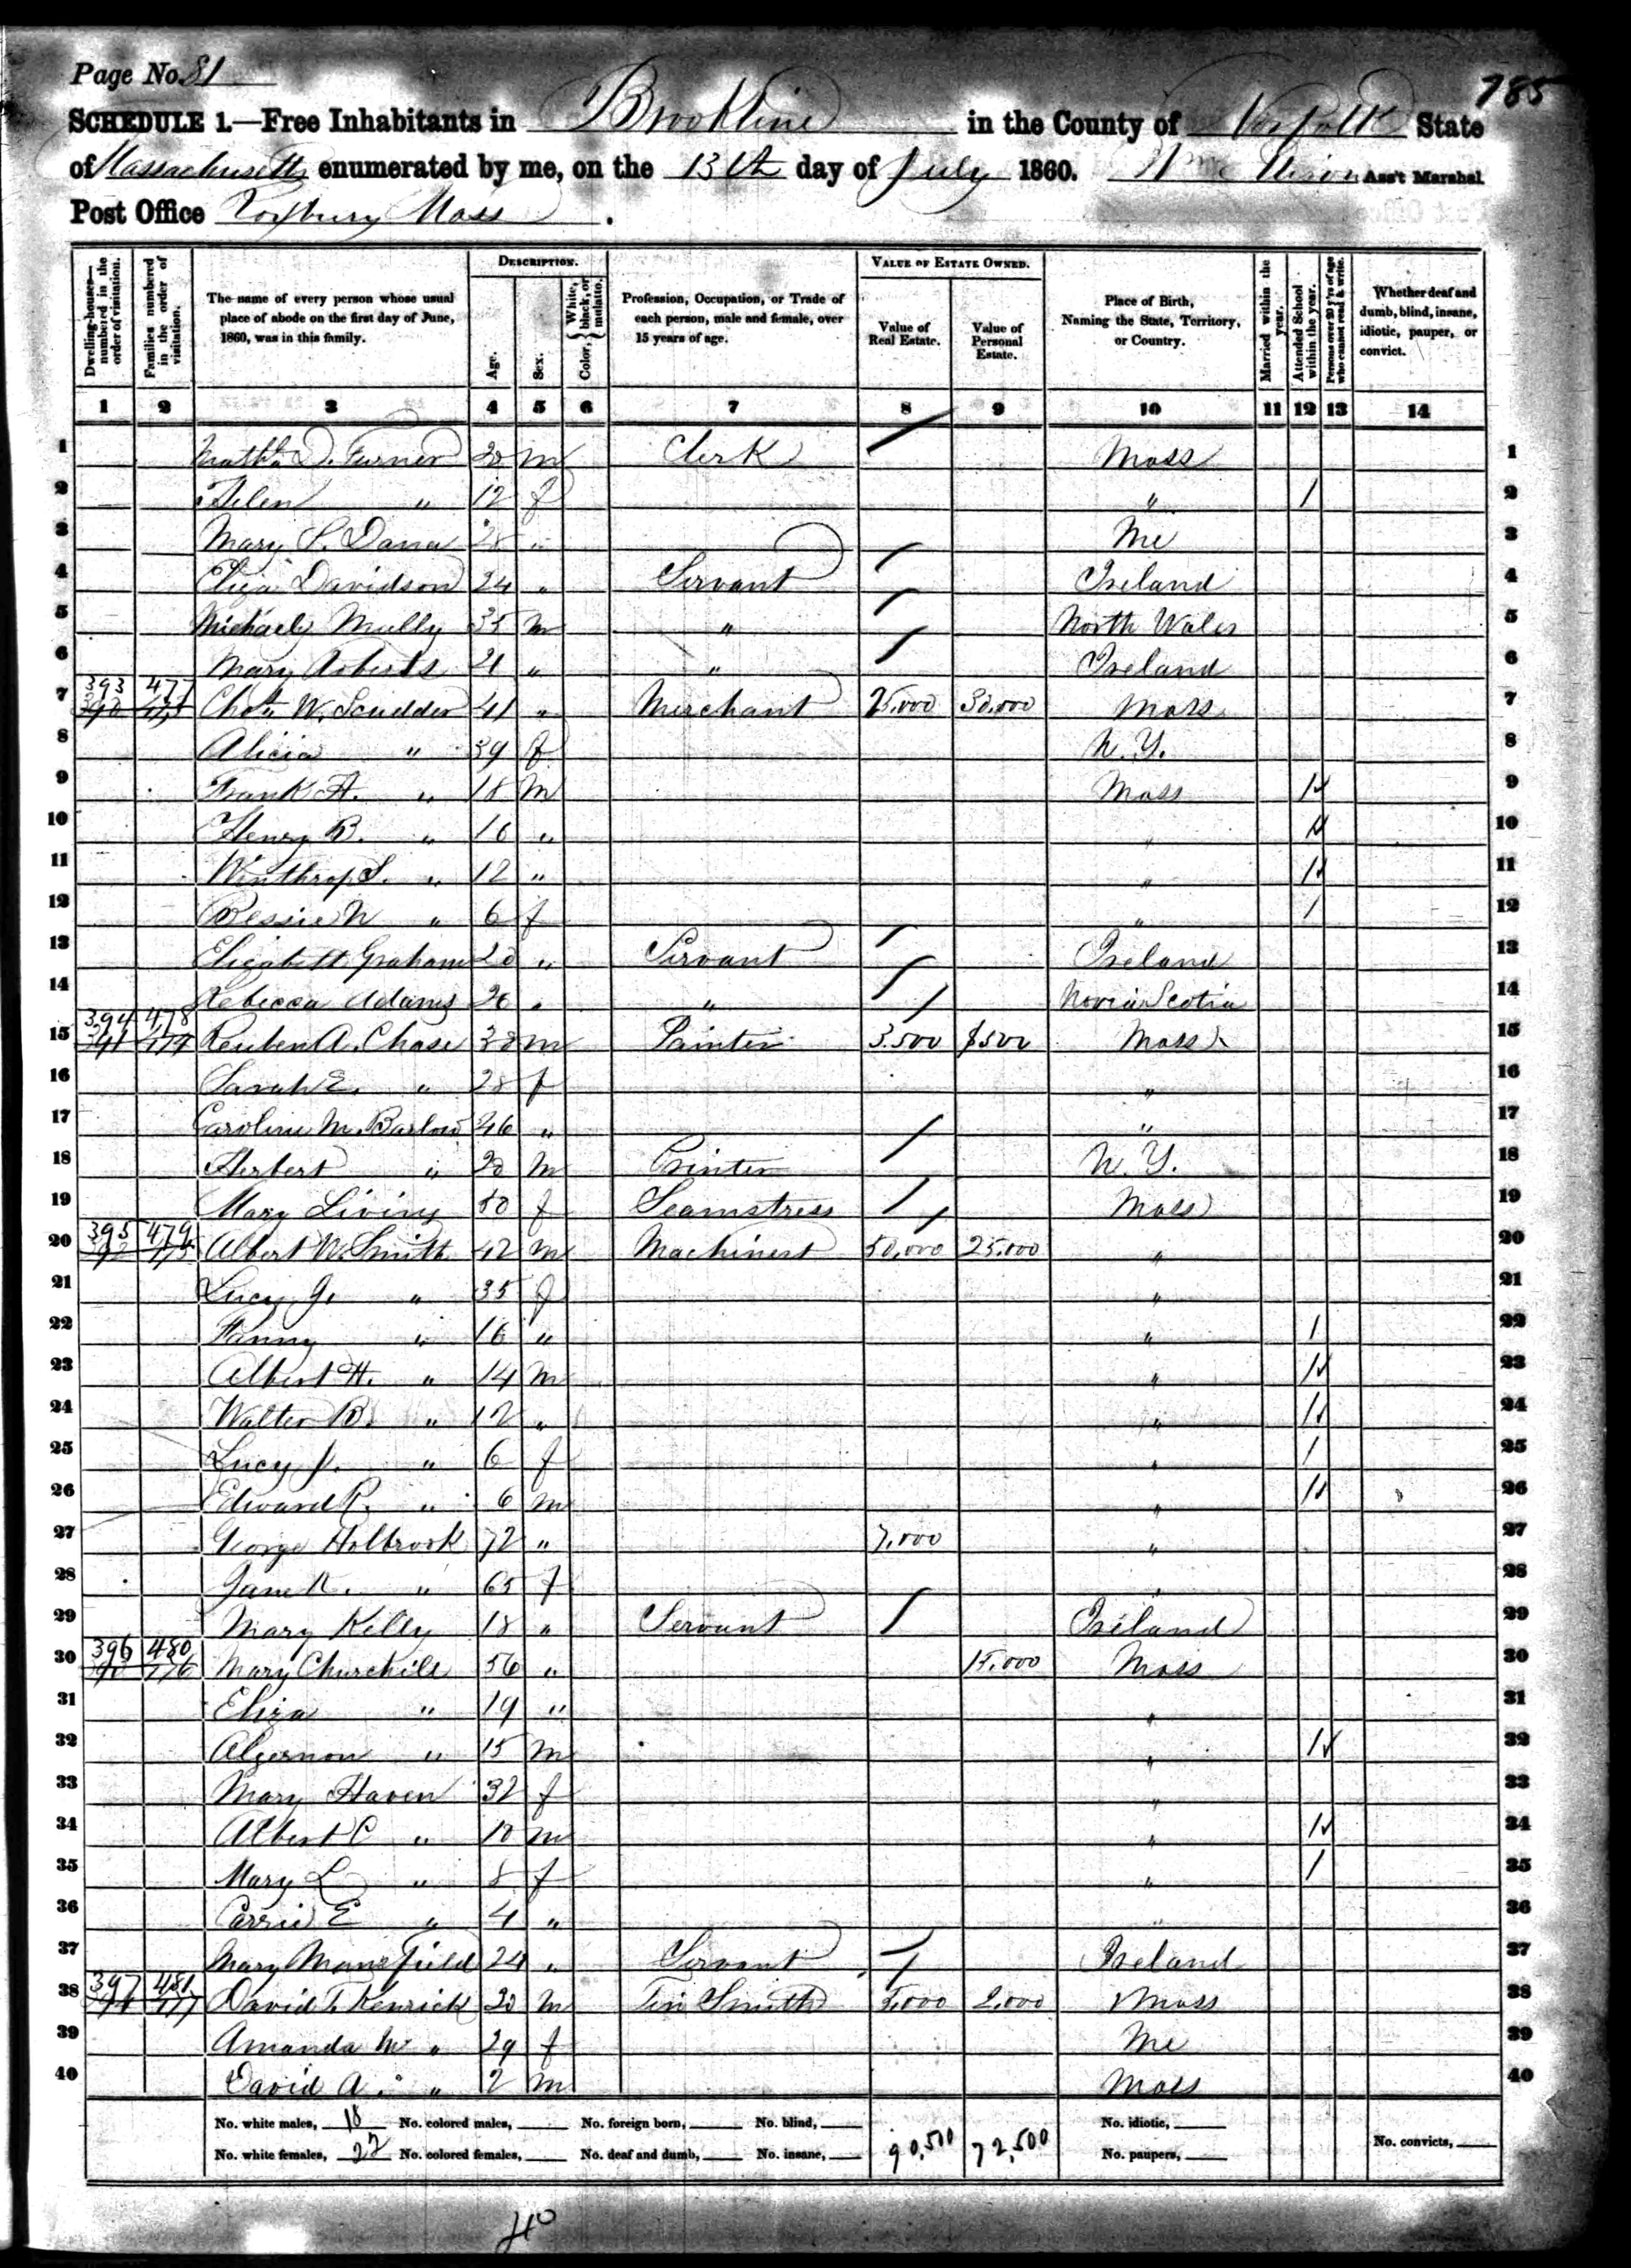 Page No. 81
785
SCHEDULE 1.—Free Inhabitants in Brookline in the County of Norfolk State
of Massachusetts enumerated by me, on the 13th day of July 1860. Wm Ass't Marshal
Post Office Roxbury Mass.
Dwelling-houses—numbered in the order of visitation.
Families numbered in the order of visitation.
The name of every person whose usual place of abode on the first day of June, 1860, was in this family.
DESCRIPTION.
Age.
Sex.
Color, { White, black, or mulatto.
Profession, Occupation, or Trade of each person, male and female, over 15 years of age.
VALUE OF ESTATE OWNED.
Value of Real Estate.
Value of Personal Estate.
Place of Birth, Naming the State, Territory, or Country.
Married within the year.
Attended School within the year.
Persons over 20 y'rs of age who cannot read & write.
Whether deaf and dumb, blind, insane, idiotic, pauper, or convict.
1 2 3 4 5 6 7 8 9 10 11 12 13 14
1 D. Turner 20 m Clerk / Mass 1
2 Helen " 12 f " 1 2
3 Mary S. Dana 28 " Me 3
4 Eliza Davidson 24 " Servant / Ireland 4
5 Michael Mully 35 m " / North Wales 5
6 Mary Roberts 21 " " / Ireland 6
7 393 477 Chas W. Scudder 41 " Merchant 25,000 30,000 Mass 7
8 Alicia " 39 f N.Y. 8
9 Frank H. " 18 m Mass 1 9
10 Henry B. " 16 " " 1 10
11 Winthrop S. " 12 " " 1 11
12 Bessie W " 6 f " 1 12
13 Elizabeth Graham 20 " Servant / Ireland 13
14 Rebecca Adams 26 " " / Novia Scotia 14
15 394 478 Reuben A. Chase 30 m Painter 3.500 $500 Mass 15
16 Sarah E. " 28 f " 16
17 Caroline M. Barlow 46 " " 17
18 Herbert " 20 m Printer / N.Y. 18
19 Mary Living 50 f Seamstress / Mass 19
20 395 479 Albert W. Smith 42 m Machinest 50,000 25.000 " 20
21 Lucy G. " 35 f " 21
22 Fanny " 16 " " 1 22
23 Albert H. " 14 m " 1 23
24 Walter B. " 12 " " 1 24
25 Lucy J. " 6 f " 1 25
26 Edward R. " 6 m " 1 26
27 George Holbrook 72 " 7,000 " 27
28 Jane K. " 65 f " 28
29 Mary Kelly 18 " Servant / Ireland 29
30 396 480 Mary Churchill 56 " 15.000 Mass 30
31 Eliza " 19 " " 31
32 Algernon " 15 m " 1 32
33 Mary Haven 32 f " 33
34 Albert C " 10 m " 1 34
35 Mary L " 8 f " 1 35
36 Carrie E " 4 " " 36
37 Mary Mansfield 24 " Servant / Ireland 37
38 397 481 David T. Kenrick 30 m Tin Smith 5,000 2,000 Mass 38
39 Amanda M " 29 f Me 39
40 David A. " 2 m Mass 40
No. white males, 18 No. colored males, No. foreign born, No. blind, No. idiotic,
No. white females, 22 No. colored females, No. deaf and dumb, No. insane, 90,500 72,500 No. paupers, No. convicts,
40